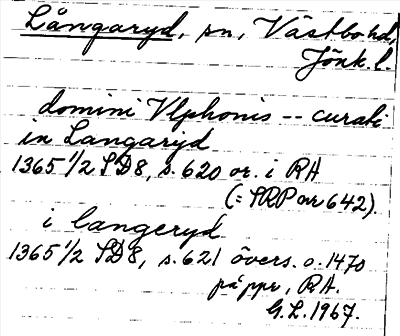 Långaryd, sn, Västbo hd,
Jönk. l.
domini Vlphonis -- curati
in Langaryd
1365 1/2 SD 8, s. 620 or. i RA
(= SRP nr 642).
i langeryd
1365 1/2 SD 8, s. 621 övers. o. 1470
på ppr, RA.
G. L. 1967.